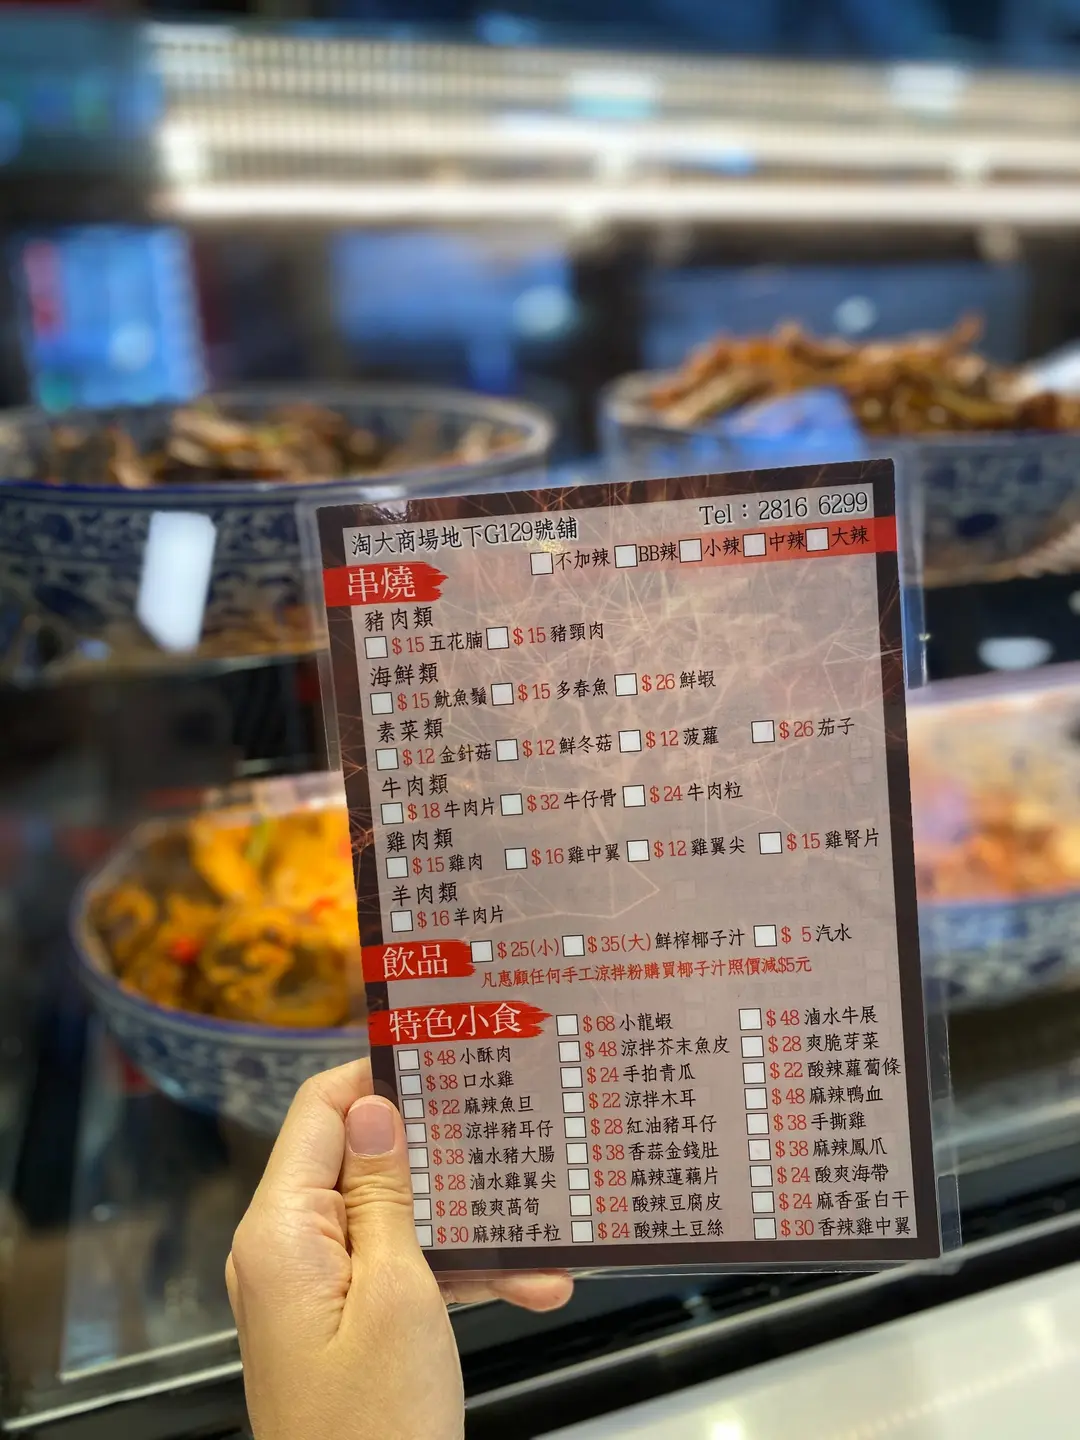 淘大商場地下G129號舖
Tel：2816 6299
□不加辣 □BB辣 □小辣 □中辣 □大辣
串燒
豬肉類
□$15五花腩 □$15豬頸肉
海鮮類
□$15魷魚鬚 □$15多春魚 □$26鮮蝦
素菜類
□$12金針菇 □$12鮮冬菇 □$12菠蘿 □$26茄子
牛肉類
□$18牛肉片 □$32牛仔骨 □$24牛肉粒
雞肉類
□$15雞肉 □$16雞中翼 □$12雞翼尖 □$15雞腎片
羊肉類
□$16羊肉片
飲品 □$25(小) □$35(大)鮮榨椰子汁 □$ 5汽水
凡惠顧任何手工涼拌粉購買椰子汁照價減$5元
特色小食
□$48小酥肉
□$38口水雞
□$22麻辣魚旦
□$28涼拌豬耳仔
□$38滷水豬大腸
□$28滷水雞翼尖
□$28酸爽萵筍
□$30麻辣豬手粒
□$68小龍蝦
□$48涼拌芥末魚皮
□$24手拍青瓜
□$22涼拌木耳
□$28紅油豬耳仔
□$38香蒜金錢肚
□$28麻辣蓮藕片
□$24酸辣豆腐皮
□$24酸辣土豆絲
□$48滷水牛展
□$28爽脆芽菜
□$22酸辣蘿蔔條
□$48麻辣鴨血
□$38手撕雞
□$38麻辣鳳爪
□$24酸爽海帶
□$24麻香蛋白干
□$30香辣雞中翼